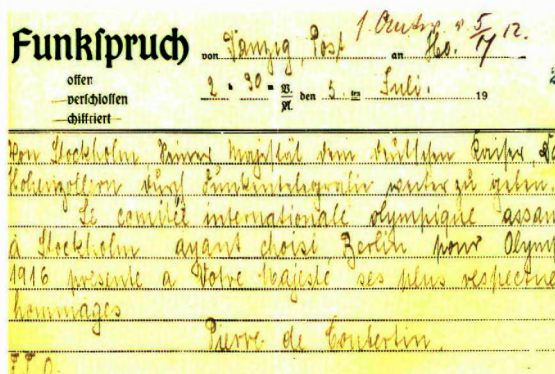 5/7 12.
Funkspruch von Danzig, Post an Ho.
offen
verschlossen
chiffriert
2 · 30 = V./N. den 5. ten Juli. 19
Von Stockholm Seiner Majestät dem deutschen Kaiser
Hohenzollern durch Funkentelegrafie weiter zu geben
Le comitée internationale olympique
à Stockholm ayant choisi Berlin pour Olymp
1916 présente a Votre Majesté ses plus respectue
hommages
Pierre de Coubertin.